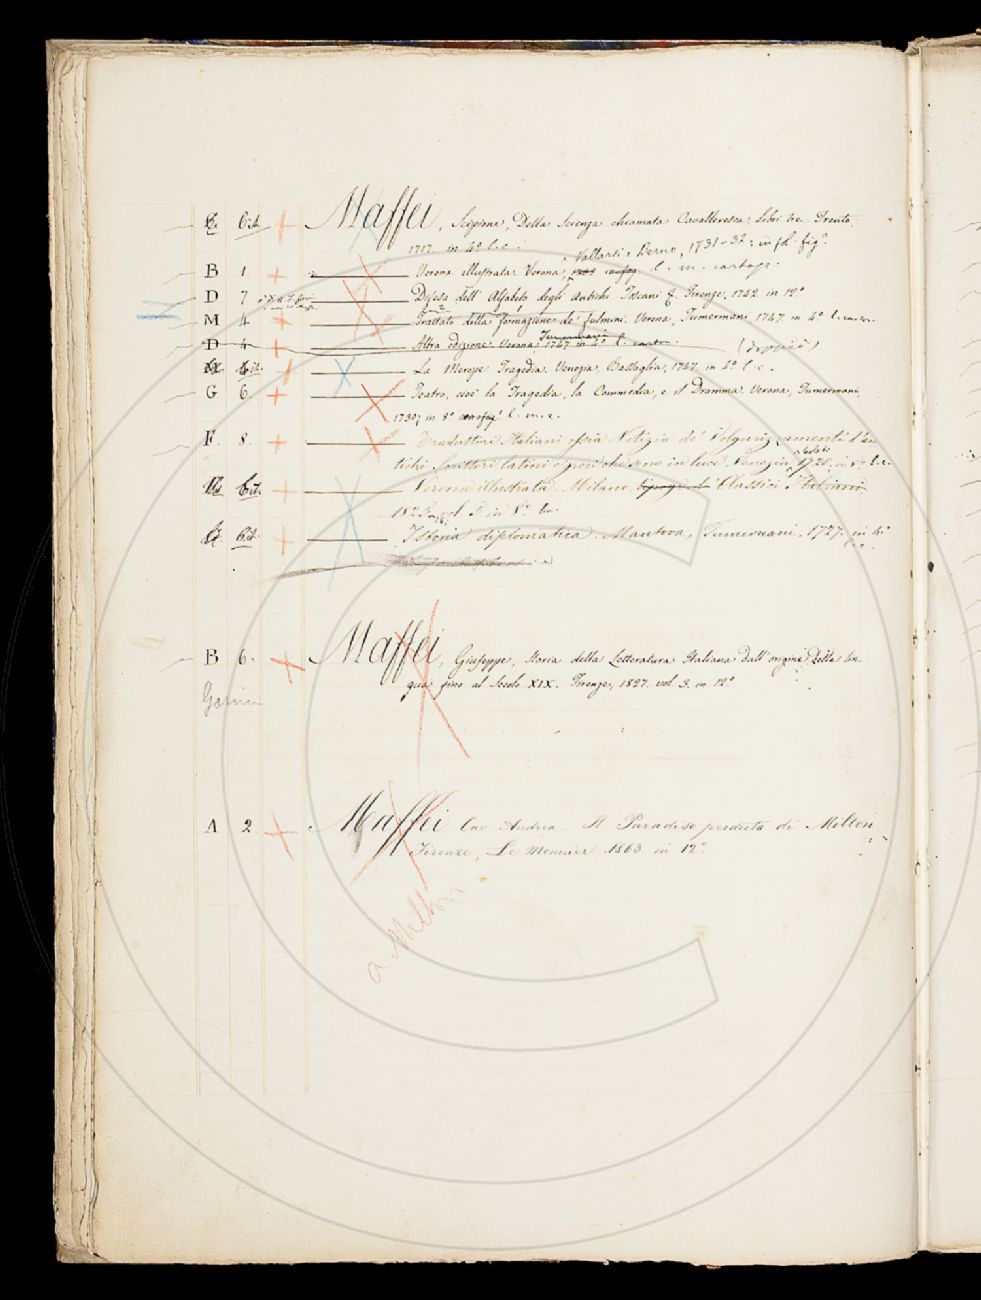 Maffei, Scipione, Della Scienza chiamata Cavalleresca, Libri tre. Trento
1717. in 4º l.c.
Vallarsi e Berno, 1731-32: in fl. figº.
B 1 Verona illustrata. Verona, l. m. cartap.
D 7 Difesa dell' Alfabeto degli Antichi Toscani &. Firenze, 1742. in 12º
M 4 Trattato della formazione de' fulmini. Verona, Tumermani 1747. in 4º l. carton.
D 4 Altra edizione. Verona, Tumermani 1747 in 4º l. carton. (doppio)
La Merope Tragedia. Venezia, Battaglia, 1747. in 4º l. c.
G 6. Teatro, cioè la Tragedia, la Commedia, e il Dramma. Verona, Tumermani,
1730, in 8º l. m. c.
F. 8. Traduttori Italiani ossia Notizia de' Volgarizzamenti d'an
tichi Scrittori latini e greci che sono in luce. Venezia, 1720, in 8º l. c.
Verona illustrata. Milano. Classici Italiani
in 8º
Istoria diplomatica. Mantova, Tumermani. 1727. in 4º
l. c.
B 6. Maffei, Giuseppe, Storia della Letteratura Italiana dall' origine della lin
gua fino al Secolo XIX. Firenze, 1827. vol 3. in 12º
Garnier
A 2 Maffei Cav. Andrea. Il Paradiso perduto di Milton
Firenze, Le Monnier 1863 in 12º.
a Milton